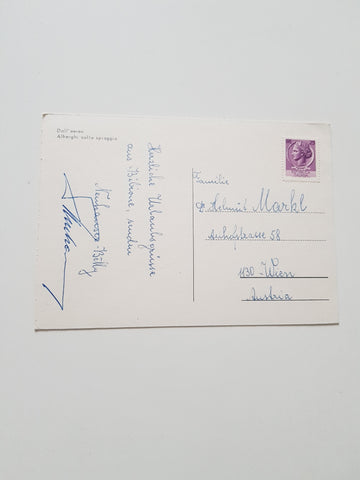 Dall'aereo
Alberghi sulla spiaggia
Herzliche Urlaubsgrüsse
aus Bibione, senden
Familie
Dr. Helmut Markl
Anhofstrasse 58
1130 Wien
Austria